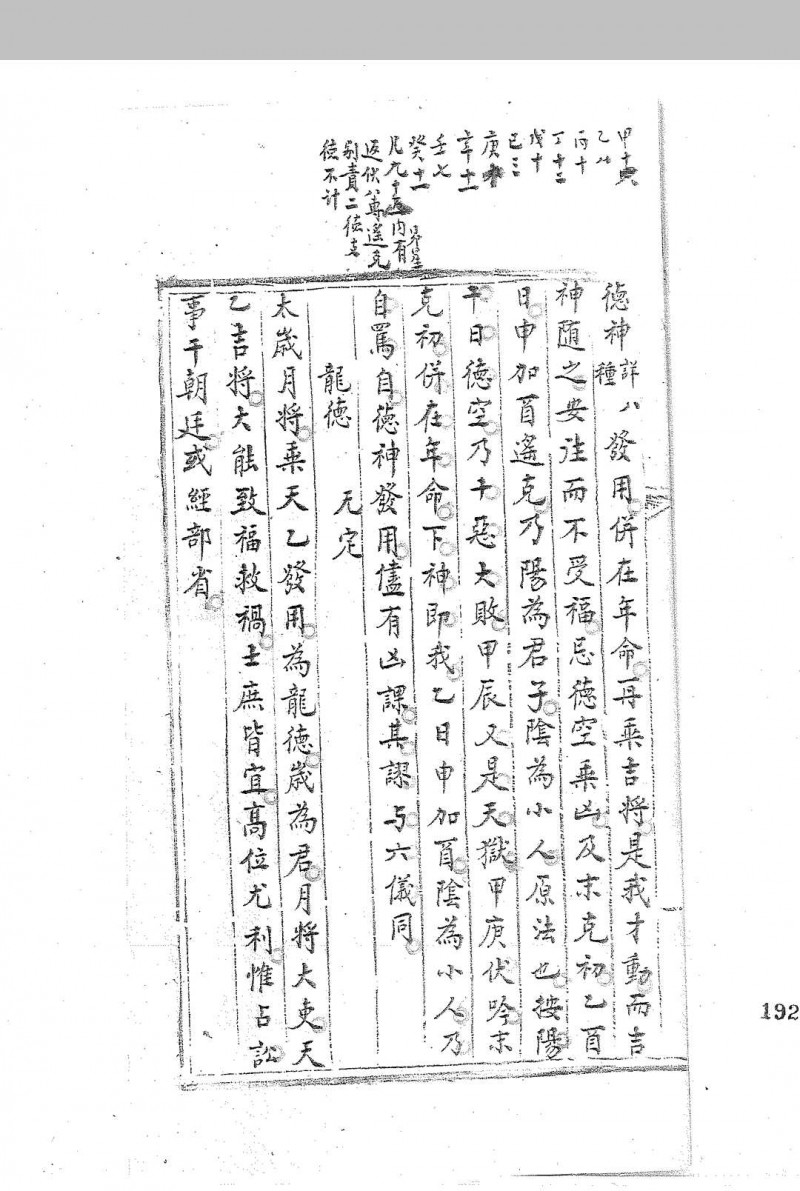 甲十
乙八
丙十
丁十二
戊十
己三
庚
辛十一
壬七
癸十一
凡九十 內有昴星
返伏八專遙克
別責二德支
德不計
德神詳八種發用併在年命再乘吉將是我才動而吉
神隨之安往而不受福忌德空乘凶及末克初乙酉
日申加酉遙克乃陽為君子陰為小人原法也按陽
干日德空乃十惡大敗甲辰又是天獄甲庚伏吟末
克初併在年命下神即我乙日申加酉陰為小人乃
自罵自德神發用儘有凶課其謬与六儀同
龍德 无定
太歲月將乘天乙發用為龍德歲為君月將大吏天
乙吉將大能致福救禍士庶皆宜高位尤利惟占訟
事干朝廷或經部省
192